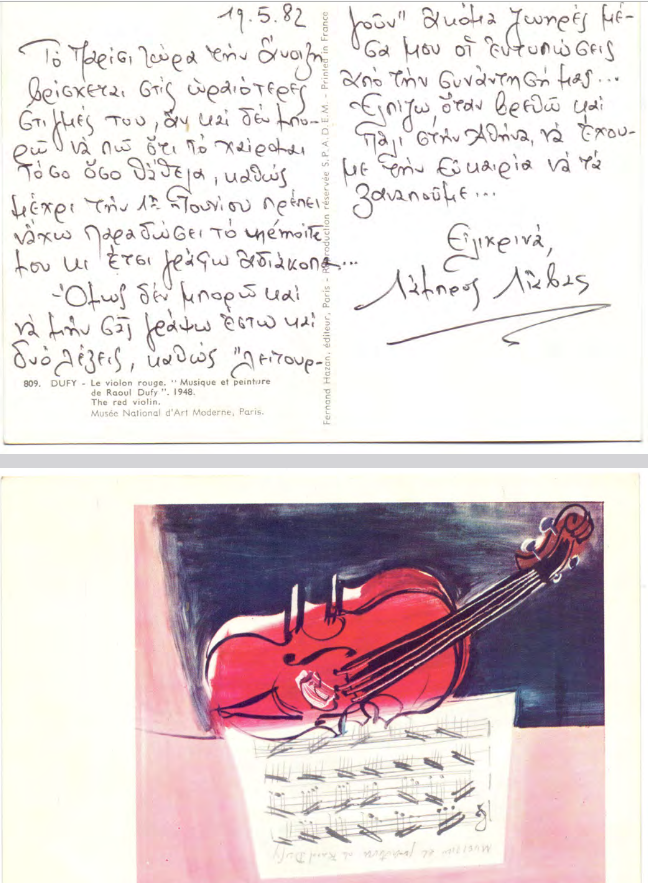 19.5.82
Τό Παρίσι τώρα τήν ἄνοιξη
βρίσκεται στίς ὡραιότερες
στιγμές του, ἄν καί δέν μπο-
ρῶ νά πῶ ὅτι τό χαίρομαι
τόσο ὅσο θἄθελα, καθώς
μέχρι τήν 1η Ἰουνίου πρέπει
νἄχω παραδώσει τό mémoire
μου κι ἔτσι γράφω ἀδιάκοπα...
-Ὅμως δέν μπορῶ καί
νά μήν σᾶς γράψω ἔστω καί
δυό λέξεις, καθώς "λειτουρ-
γοῦν" ἀκόμα ζωηρές μέ-
σα μου οἱ ἐντυπώσεις
ἀπό τήν συνάντησή μας...
Ἐλπίζω, ὅταν βρεθῶ καί
πάλι στήν Ἀθήνα, νά ἔχου-
με τήν εὐκαιρία νά τά
ξαναποῦμε...
Εἰλικρινά,
Λάμπρος Λιάβας
809. DUFY - Le violon rouge. "Musique et peinture
de Raoul Dufy". 1948.
The red violin.
Musée National d'Art Moderne, Paris.
Fernand Hazan, éditeur, Paris - Reproduction réservée S.P.A.D.E.M. - Printed in France
Musique et peinture de Raoul Dufy